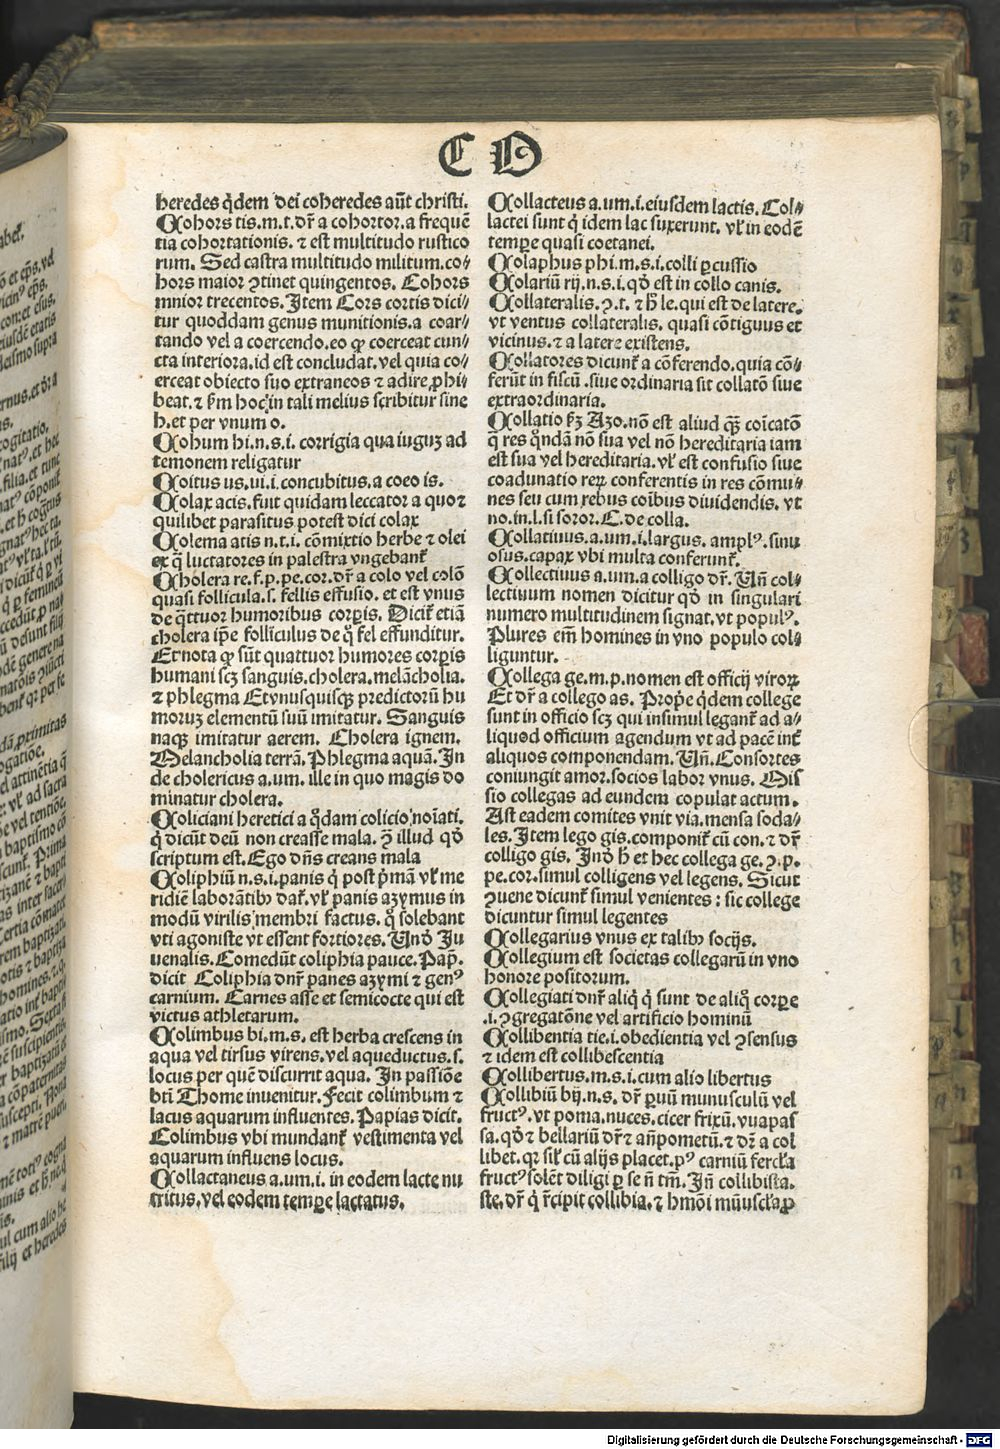 C O
heredes q̄dem dei coheredes aūt christi.
Cohors tis.m.t.dr̄ a cohortor.a frequē
tia cohortationis. ⁊ est multitudo rustico
rum. Sed castra multitudo militum.co⸗
hors maior ꝯtinet quingentos. Cohors
mnior trecentos. Item Cors cortis dici⸗
tur quoddam genus munitionis.a coar⸗
tando vel a coercendo.eo ꝙ coerceat cun⸗
cta interiora.id est concludat.vel quia co⸗
erceat obiecto suo extraneos ⁊ adire ꝓhi⸗
beat.⁊ ẜm hoc in tali melius scribitur sine
h.et per vnum o.
Cohum hi.n.s.i. corrigia qua iuguꝫ ad
temonem religatur
Coitus us.ui.i.concubitus.a coeo is.
Colax acis.fuit quidam leccator a quo⁊
quilibet parasitus potest dici colax
Colema atis n.t.i. cōmixtio herbe ⁊ olei
ex q̄ luctatores in palestra vngebant᷑
Cholera re.f.p.pe.cor.dr̄ a colo vel colō
quasi follicula.s. fellis effusio. et est vnus
de q̄ttuor humoribus corꝑis. Dicit᷑ etiā
cholera ip̄e folliculus de q̄ fel effunditur.
Et nota ꝙ sūt quattuor humores corꝑis
humani scꝫ sanguis.cholera.melācholia.
⁊ phlegma Et vnusquisqꝫ predictorū hu
moruꝫ elementū suū imitatur. Sanguis
naqꝫ imitatur aerem. Cholera ignem.
Melancholia terrā. Phlegma aquā. In
de cholericus a.um. ille in quo magis do
minatur cholera.
Coliciani heretici a q̄dam colicio noīati.
q̄ dicūt deū non creasse mala. ꝯ̄ illud qd̄
scriptum est. Ego dn̄s creans mala
Coliphiū n.s.i.panis q̄ post pͥmā vl᷑ me
ridiē laborātibꝫ dat᷑. vl᷑ panis azymus in
modū virilis membri factus. q̄ solebant
vti agoniste vt essent fortiores. Vnd̄ Ju
uenalis. Comedūt coliphia pauce. Pap̄.
dicit Coliphia dn̄r panes azymi ⁊ genꝰ
carnium. Carnes asse et semicocte qui est
victus athletarum.
Colimbus bi.m.s. est herba crescens in
aqua vel tirsus virens.vel aqueductus.s.
locus per quē discurrit aqua. In passiōe
bt̄i Thome inuenitur. Fecit colimbum ⁊
lacus aquarum influentes. Papias dicit.
Colimbus vbi mundant᷑ vestimenta vel
aquarum influens locus.
Collactaneus a.um.i. in eodem lacte nu
tritus.vel eodem temꝑe lactatus.
Collacteus a.um.i.eiusdem lactis. Col⸗
lactei sunt q̄ idem lac suxerunt. vl᷑ in eodē
temꝑe quasi coetanei.
Colaphus phi.m.s.i.colli ꝑcussio
Colariū rij.n.s.i.qd̄ est in collo canis.
Collateralis. ꝯ.t. ⁊ h̄ le.qui est de latere.
vt ventus collateralis. quasi cōtiguus et
vicinus.⁊ a latere existens.
Collatores dicunt᷑ a cōferendo.quia cō⸗
ferūt in fiscū .siue ordinaria sit collatō siue
extraordinaria.
Collatio ẜꝫ Azo.nō est aliud qꝫ coīcatō
q̄ res q̄ndā nō sua vel nō hereditaria iam
est sua vel hereditaria. vl᷑ est confusio siue
coadunatio reꝝ conferentis in res cōmu⸗
nes seu cum rebus coībus diuidendis. vt
no.in.l.si soror.C.de colla.
Collatiuus.a.um.i.largus. amplꝰ. sinu
osus.capax vbi multa conferunt᷑.
Collectiuus a.um.a colligo dr̄. Vn̄ col⸗
lectiuum nomen dicitur qd̄ in singulari
numero multitudinem signat.vt populꝰ.
Plures em̄ homines in vno populo col⸗
liguntur.
Collega ge.m.p.nomen est officij viroꝝ
Et dr̄ a collego as. Prope q̄dem college
sunt in officio scꝫ qui insimul legant᷑ ad a⸗
liquod officium agendum vt ad pacē int᷑
aliquos componendam. Vn̄. Consortes
coniungit amor.socios labor vnus. Mis
sio collegas ad eundem copulat actum.
Ast eadem comites vnit via.mensa soda⸗
les. Item lego gis.componit᷑ cū con.⁊ dr̄
colligo gis. Ind̄ h̄ et hec collega ge. ꝯ.p.
pe.cor.simul colligens vel legens. Sicut
ꝯuene dicunt᷑ simul venientes : sic college
dicuntur simul legentes
Collegarius vnus ex talibꝫ socijs.
Collegium est societas collegarū in vno
honore positorum.
Collegiati dn̄r aliq̄ q̄ sunt de aliq̄ corꝑe
.i.ꝯgregatōne vel artificio hominū
Collibentia tie.i.obedientia vel ꝯsensus
⁊ idem est collibescentia
Collibertus.m.s.i.cum alio libertus
Collibiū bij.n.s. dr̄ ꝑuū munusculū vel
fructꝰ. vt poma.nuces.cicer frixū.vuapas
sa.qd̄ ⁊ bellariū dr̄ ⁊ an̄pometū.⁊ dr̄ a col
libet.qꝛ sil᷑ cū alijs placet.pꝰ carniū fercl̄a
fructꝰ solēt diligi ꝑ se n̄ tm̄. Jn̄ collibista.
ste.dr̄ q̄ r̄cipit collibia.⁊ hmōi mūuscl̄a ꝓ
Digitalisierung gefördert durch die Deutsche Forschungsgemeinschaft - DFG